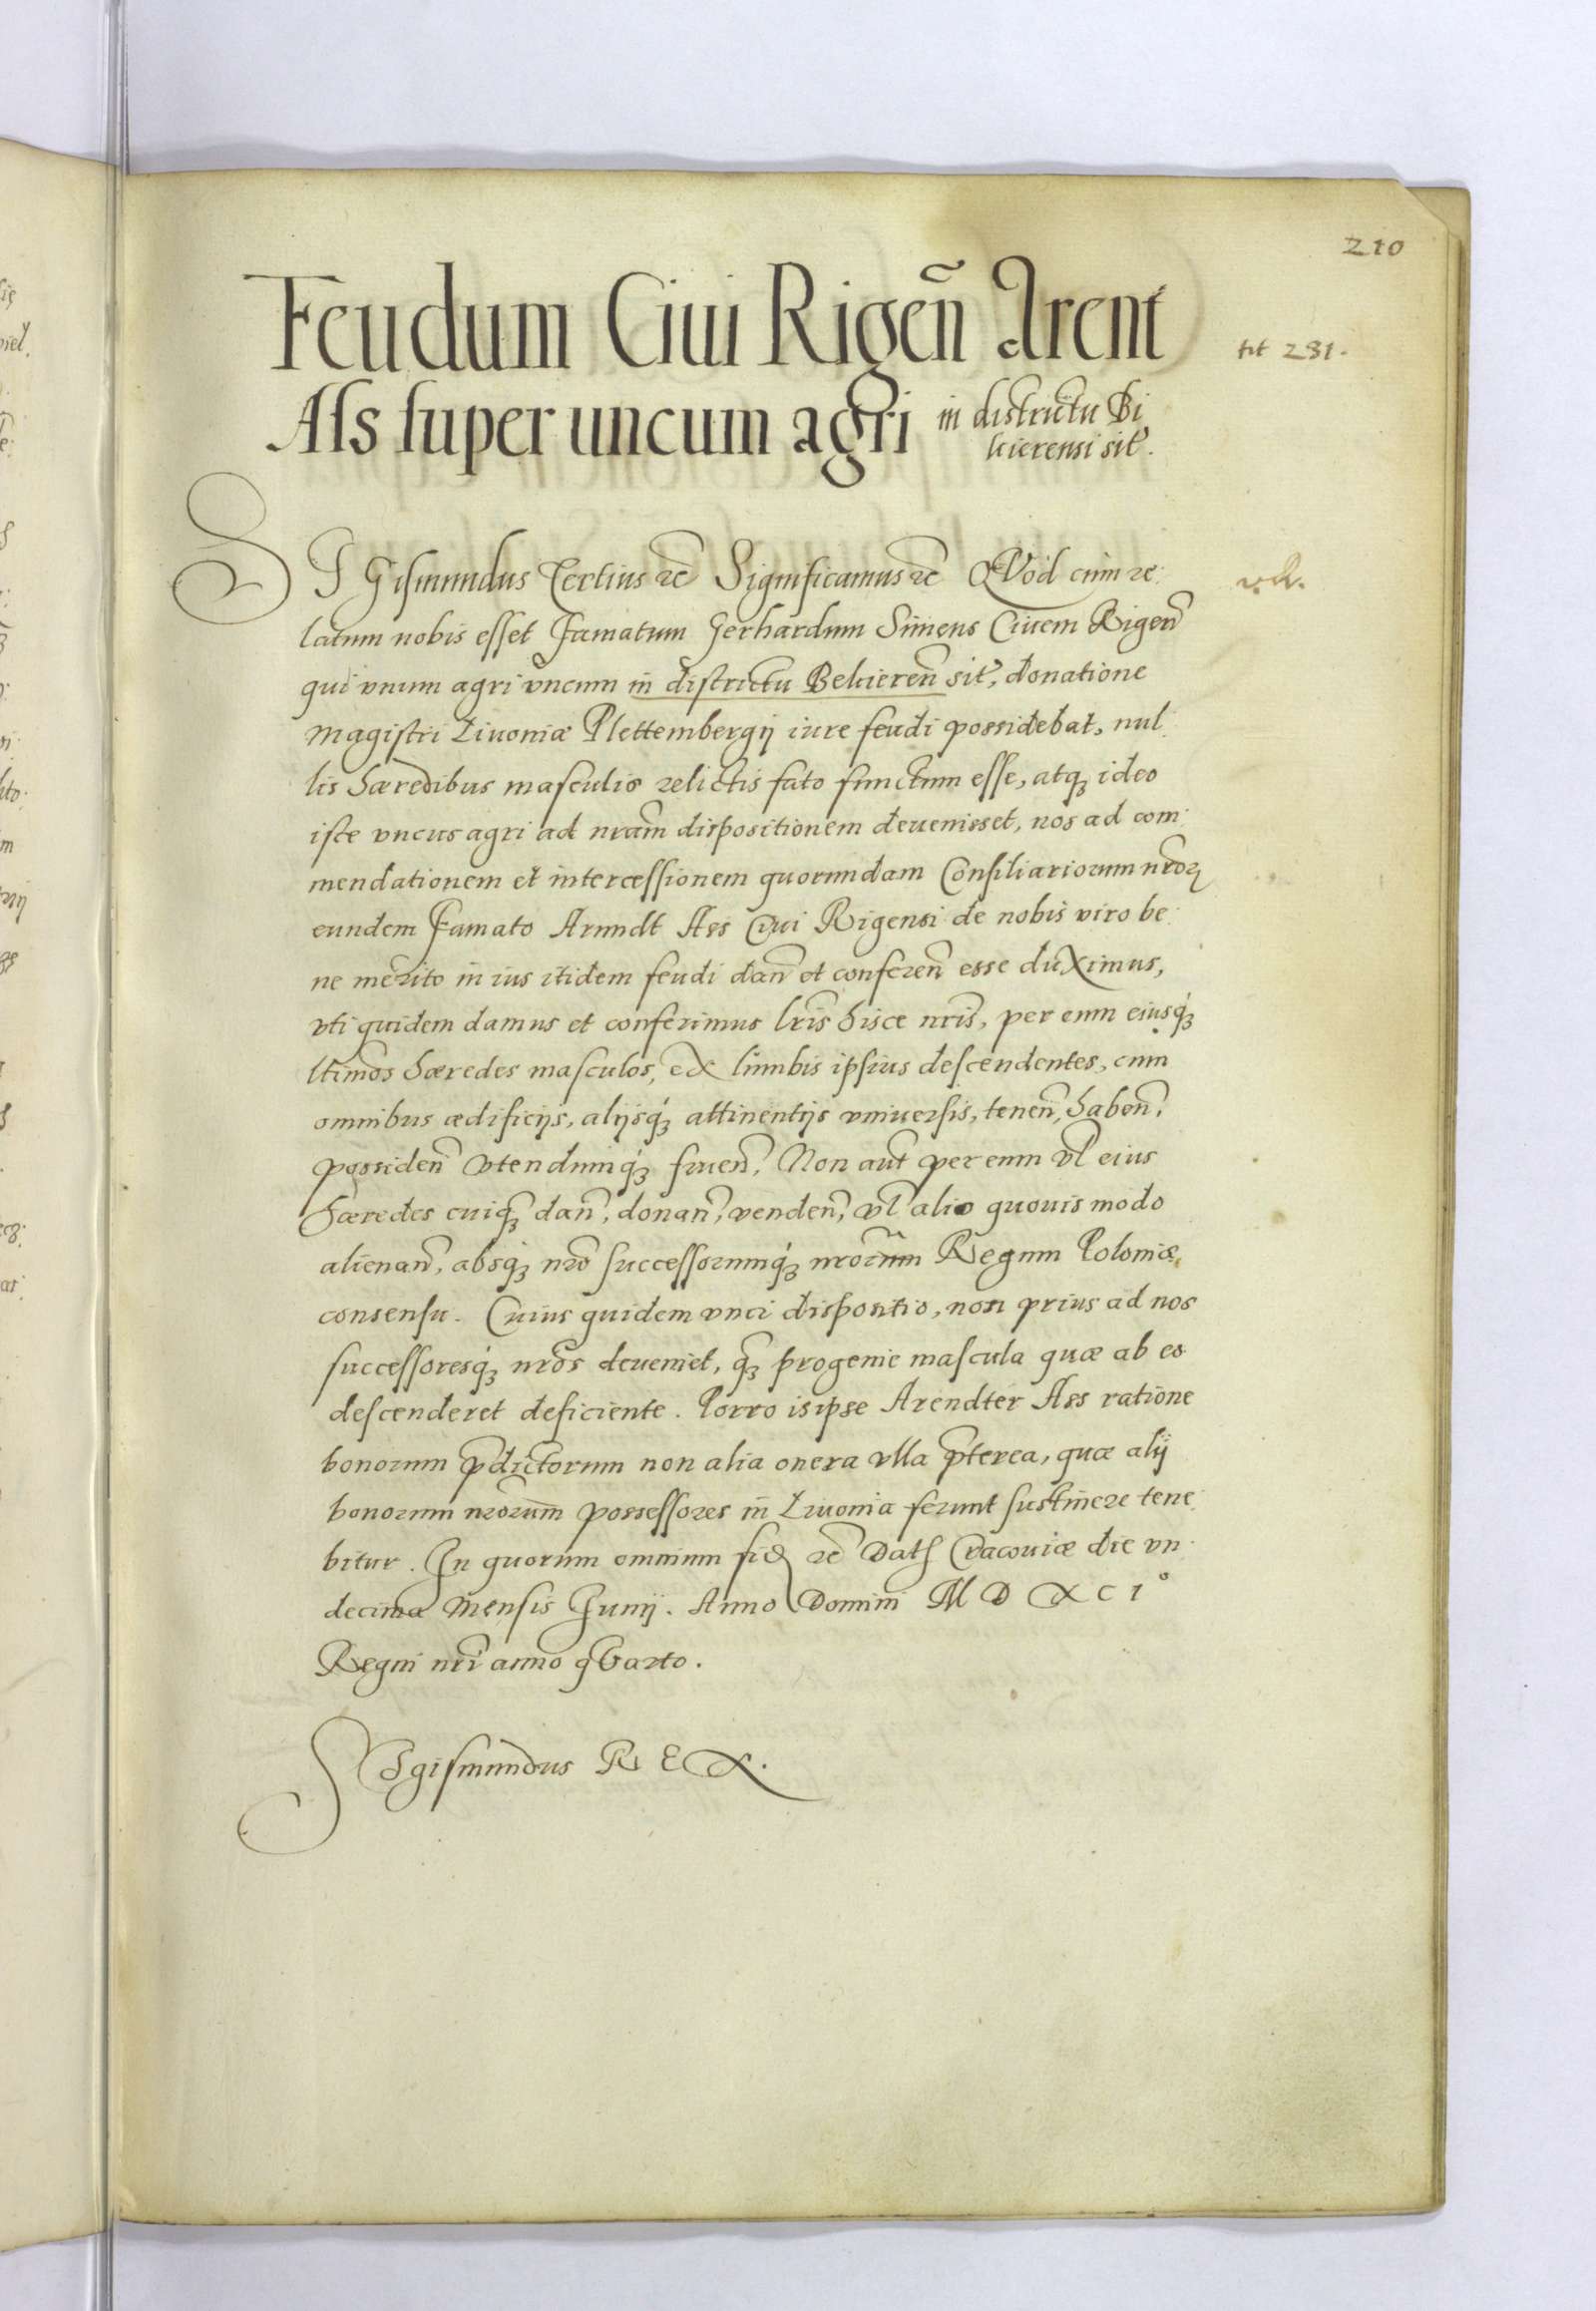 210
Feudum Ciui Rigeñ Arent
tit 231.
Ass super uncum agri in districtu Bi
lcierensi sit.
SIGismundus Tertius etc Significamus etc QVod cum re
latum nobis esset Famatum Gerhardum Simens Ciuem Rigeñ
qui vnum agri vncum in districtu Belciereñ sit, donatione
Magistri Liuoniæ Plettembergij iure feudi possidebat, nul
lis hæredibus masculis relictis fato functum esse, atq3 ideo
iste vncus agri ad nram̃ dispositionem deuenisset, nos ad com
mendationem et intercessionem quorundam Consiliariorum nror̃
eundem Famato Arnndt Ass Ciui Rigensi de nobis viro be
ne merito in ius itidem feudi dañ et confereñ esse duximus,
vti quidem damus et conferimus lrĩs hisce nrĩs, per eum eiusq3
ltimõs hæredes masculos, ex lumbis ipsius descendentes, cum
omnibus ædificijs, alijsq3 attinentijs vniuersis, teneñ, habeñ,
possideñ vtendumq3 frueñ, Non aut̃ per eum vl̃ eius
hæredes cuiq3 dañ, donañ, vendeñ, vl̃ alio quouis modo
alienañ, absq3 nrõ successorumq3 nrorũm Regum Poloniæ
consensu. Cuius quidem vnci dispositio, non prius ad nos
successoresq3 nrõs deueniet, q̃3 progenie mascula quæ ab eo
descenderet deficiente. Porro is ipse Arendter Ass ratione
bonorum p̃dictorum non alia onera vlla p̃terea, quæ alij
bonorum nrorũm possessores in Liuonia ferunt sustinere tene
bitur. In quorum omnium fid etc Dat Cracouiæ die vn
decima Mensis Junij. Anno Domini M D XC I°
Regni nrĩ anno qVarto.
Sigismundus REX.